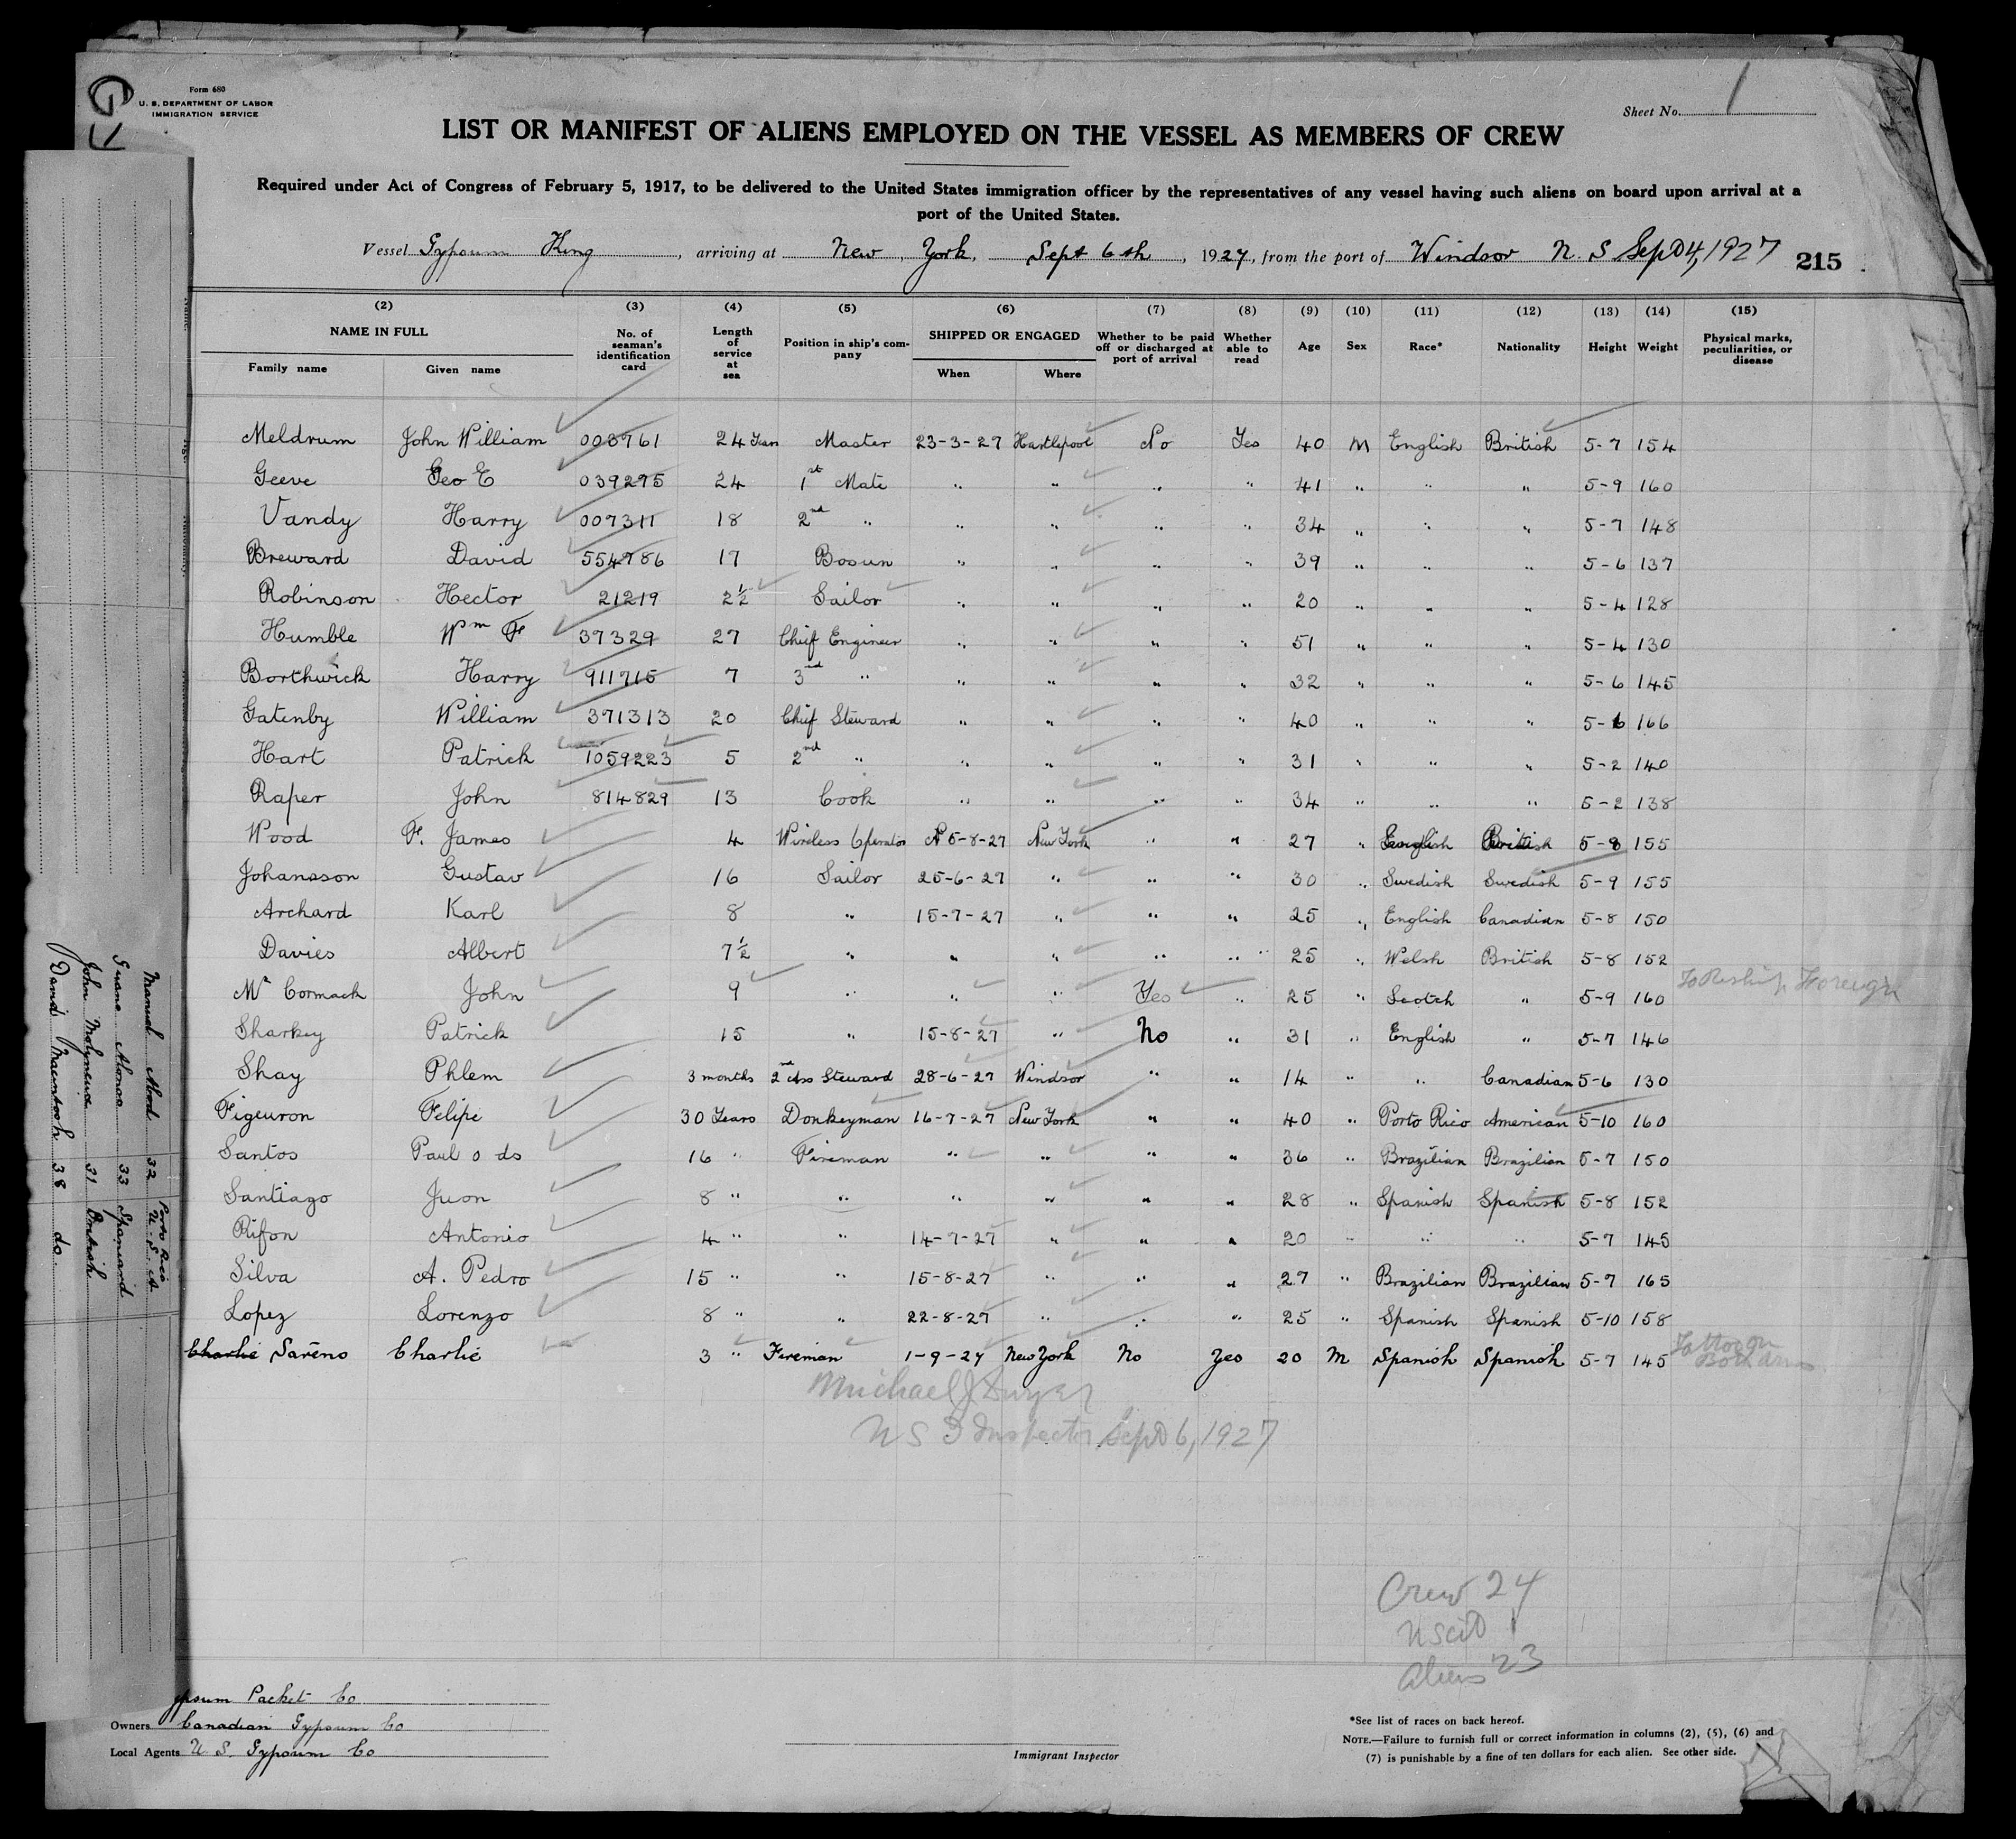 Form 680
U. S. DEPARTMENT OF LABOR
IMMIGRATION SERVICE
Sheet No. 1
LIST OR MANIFEST OF ALIENS EMPLOYED ON THE VESSEL AS MEMBERS OF CREW
Required under Act of Congress of February 5, 1917, to be delivered to the United States immigration officer by the representatives of any vessel having such aliens on board upon arrival at a
port of the United States.
Vessel Gypsum King, arriving at New York, Sept 6th, 1927, from the port of Windsor N. S Sept 4, 1927 215
(2) (3) (4) (5) (6) (7) (8) (9) (10) (11) (12) (13) (14) (15)
NAME IN FULL No. of seaman's identification card Length of service at sea Position in ship's company SHIPPED OR ENGAGED Whether to be paid off or discharged at port of arrival Whether able to read Age Sex Race* Nationality Height Weight Physical marks, peculiarities, or disease
Family name Given name When Where
Meldrum John William 008761 24 Years Master 23-3-27 Hartlepool No Yes 40 M English British 5-7 154
Geeve Geo E 039275 24 1st Mate " " " " 41 " " " 5-9 160
Vandy Harry 007311 18 2nd " " " " " 34 " " " 5-7 148
Breward David 554786 17 Bosun " " " " 39 " " " 5-6 137
Robinson Hector 21219 2½ Sailor " " " " 20 " " " 5-4 128
Humble Wm F 37329 27 Chief Engineer " " " " 51 " " " 5-4 130
Borthwick Harry 911715 7 3rd " " " " " 32 " " " 5-6 145
Gatenby William 371313 20 Chief Steward " " " " 40 " " " 5-6 166
Hart Patrick 1059223 5 2nd " " " " " 31 " " " 5-2 140
Raper John 814829 13 Cook " " " " 34 " " " 5-2 138
Wood F. James 4 Wireless Operator 5-8-27 New York " " 27 " English British 5-8 155
Johansson Gustav 16 Sailor 25-6-27 " " " 30 " Swedish Swedish 5-9 155
Archard Karl 8 " 15-7-27 " " " 25 " English Canadian 5-8 150
Davies Albert 7½ " " " " " 25 " Welsh British 5-8 152
Mc Cormack John 9 " " " Yes " 25 " Scotch " 5-9 160 To Reship Foreign
Sharkey Patrick 15 " 15-8-27 " No " 31 " English " 5-7 146
Shay Phlem 3 months 2nd Ass Steward 28-6-27 Windsor " " 14 " " Canadian 5-6 130
Figeuron Felipe 30 Years Donkeyman 16-7-27 New York " " 40 " Porto Rico American 5-10 160
Santos Paul o ds 16 " Fireman " " " " 36 " Brazilian Brazilian 5-7 150
Santiago Juon 8 " " " " " " 28 " Spanish Spanish 5-8 152
Rifon Antonio 4 " " 14-7-27 " " " 20 " " " 5-7 145
Silva A. Pedro 15 " " 15-8-27 " " " 27 " Brazilian Brazilian 5-7 165
Lopez Lorenzo 8 " " 22-8-27 " " " 25 " Spanish Spanish 5-10 158
Charlie Sareno Charlie 3 " Fireman 1-9-27 New York No Yes 20 M Spanish Spanish 5-7 145 Tattoo on Both Arms
Michael J Dwyer
U S I Inspector Sept 6, 1927
Crew 24
US cit 1
Aliens 23
Manuel Abod 32 Porto Rico U.S.A
Alonso 33 Spaniard
John Molyneux 31 British
David Macintosh 38 do.
Gypsum Packet Co
Owners Canadian Gypsum Co
Local Agents U S. Gypsum Co
Immigrant Inspector
*See list of races on back hereof.
NOTE.—Failure to furnish full or correct information in columns (2), (5), (6) and
(7) is punishable by a fine of ten dollars for each alien. See other side.